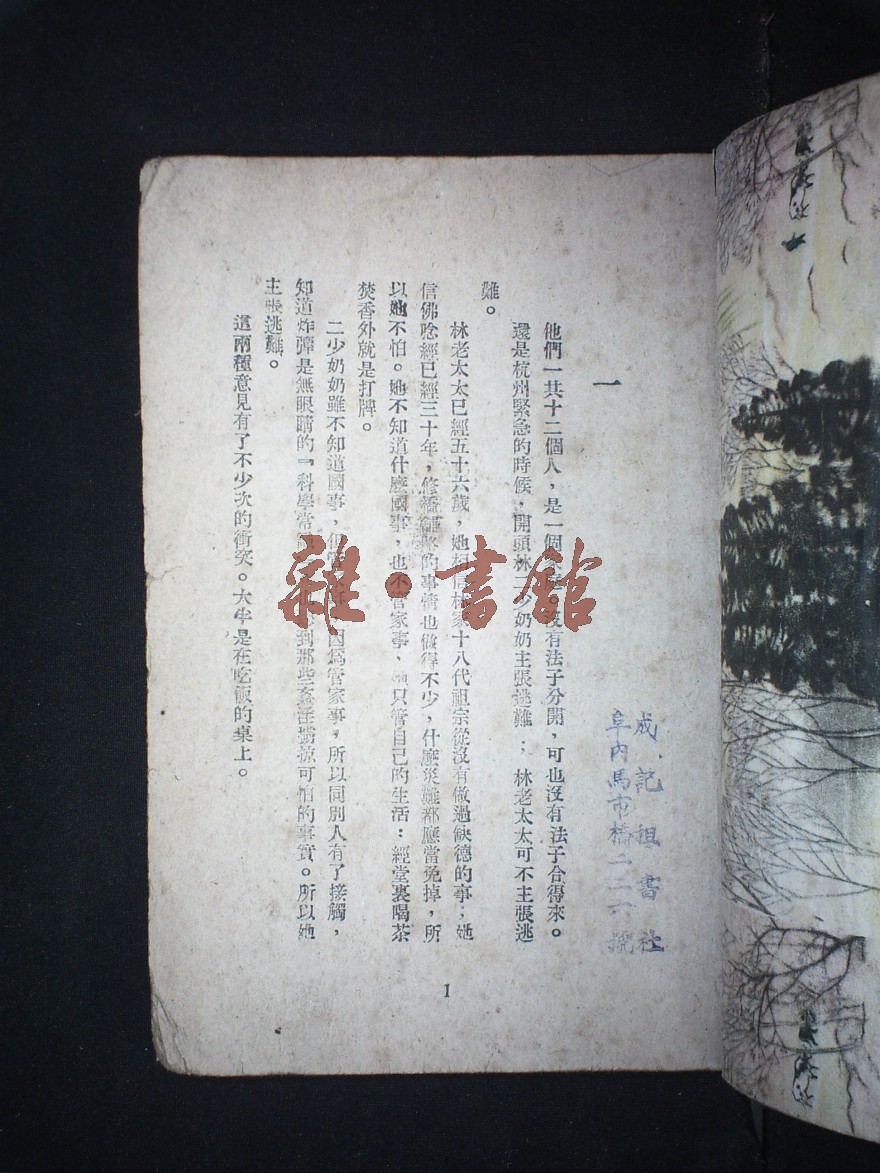 一
他們一共十二個人，是一個家。沒有法子分開，可也沒有法子合得來。
還是杭州緊急的時候，開頭林二少奶奶主張逃難；林老太太可不主張逃
難。
林老太太已經五十六歲，她相信林家十八代祖宗從沒有做過缺德的事；她
信佛唸經已經三十年，修橋的事情也做得不少，什麼災難都應當免掉，所
以她不怕。她不知道什麼國事，也不管家事，她只管自己的生活：經堂裏喝茶
焚香外就是打牌。
二少奶奶雖不知道國事，但因爲管家事，所以同別人有了接觸，
知道炸彈是無眼睛的『科學常到那些姦淫擄掠可怕的事實。所以她
主張逃難。
這兩種意見有了不少次的衝突。大半是在吃飯的桌上。
1
成記租書社
阜內馬市橋二二六號
雜·書館